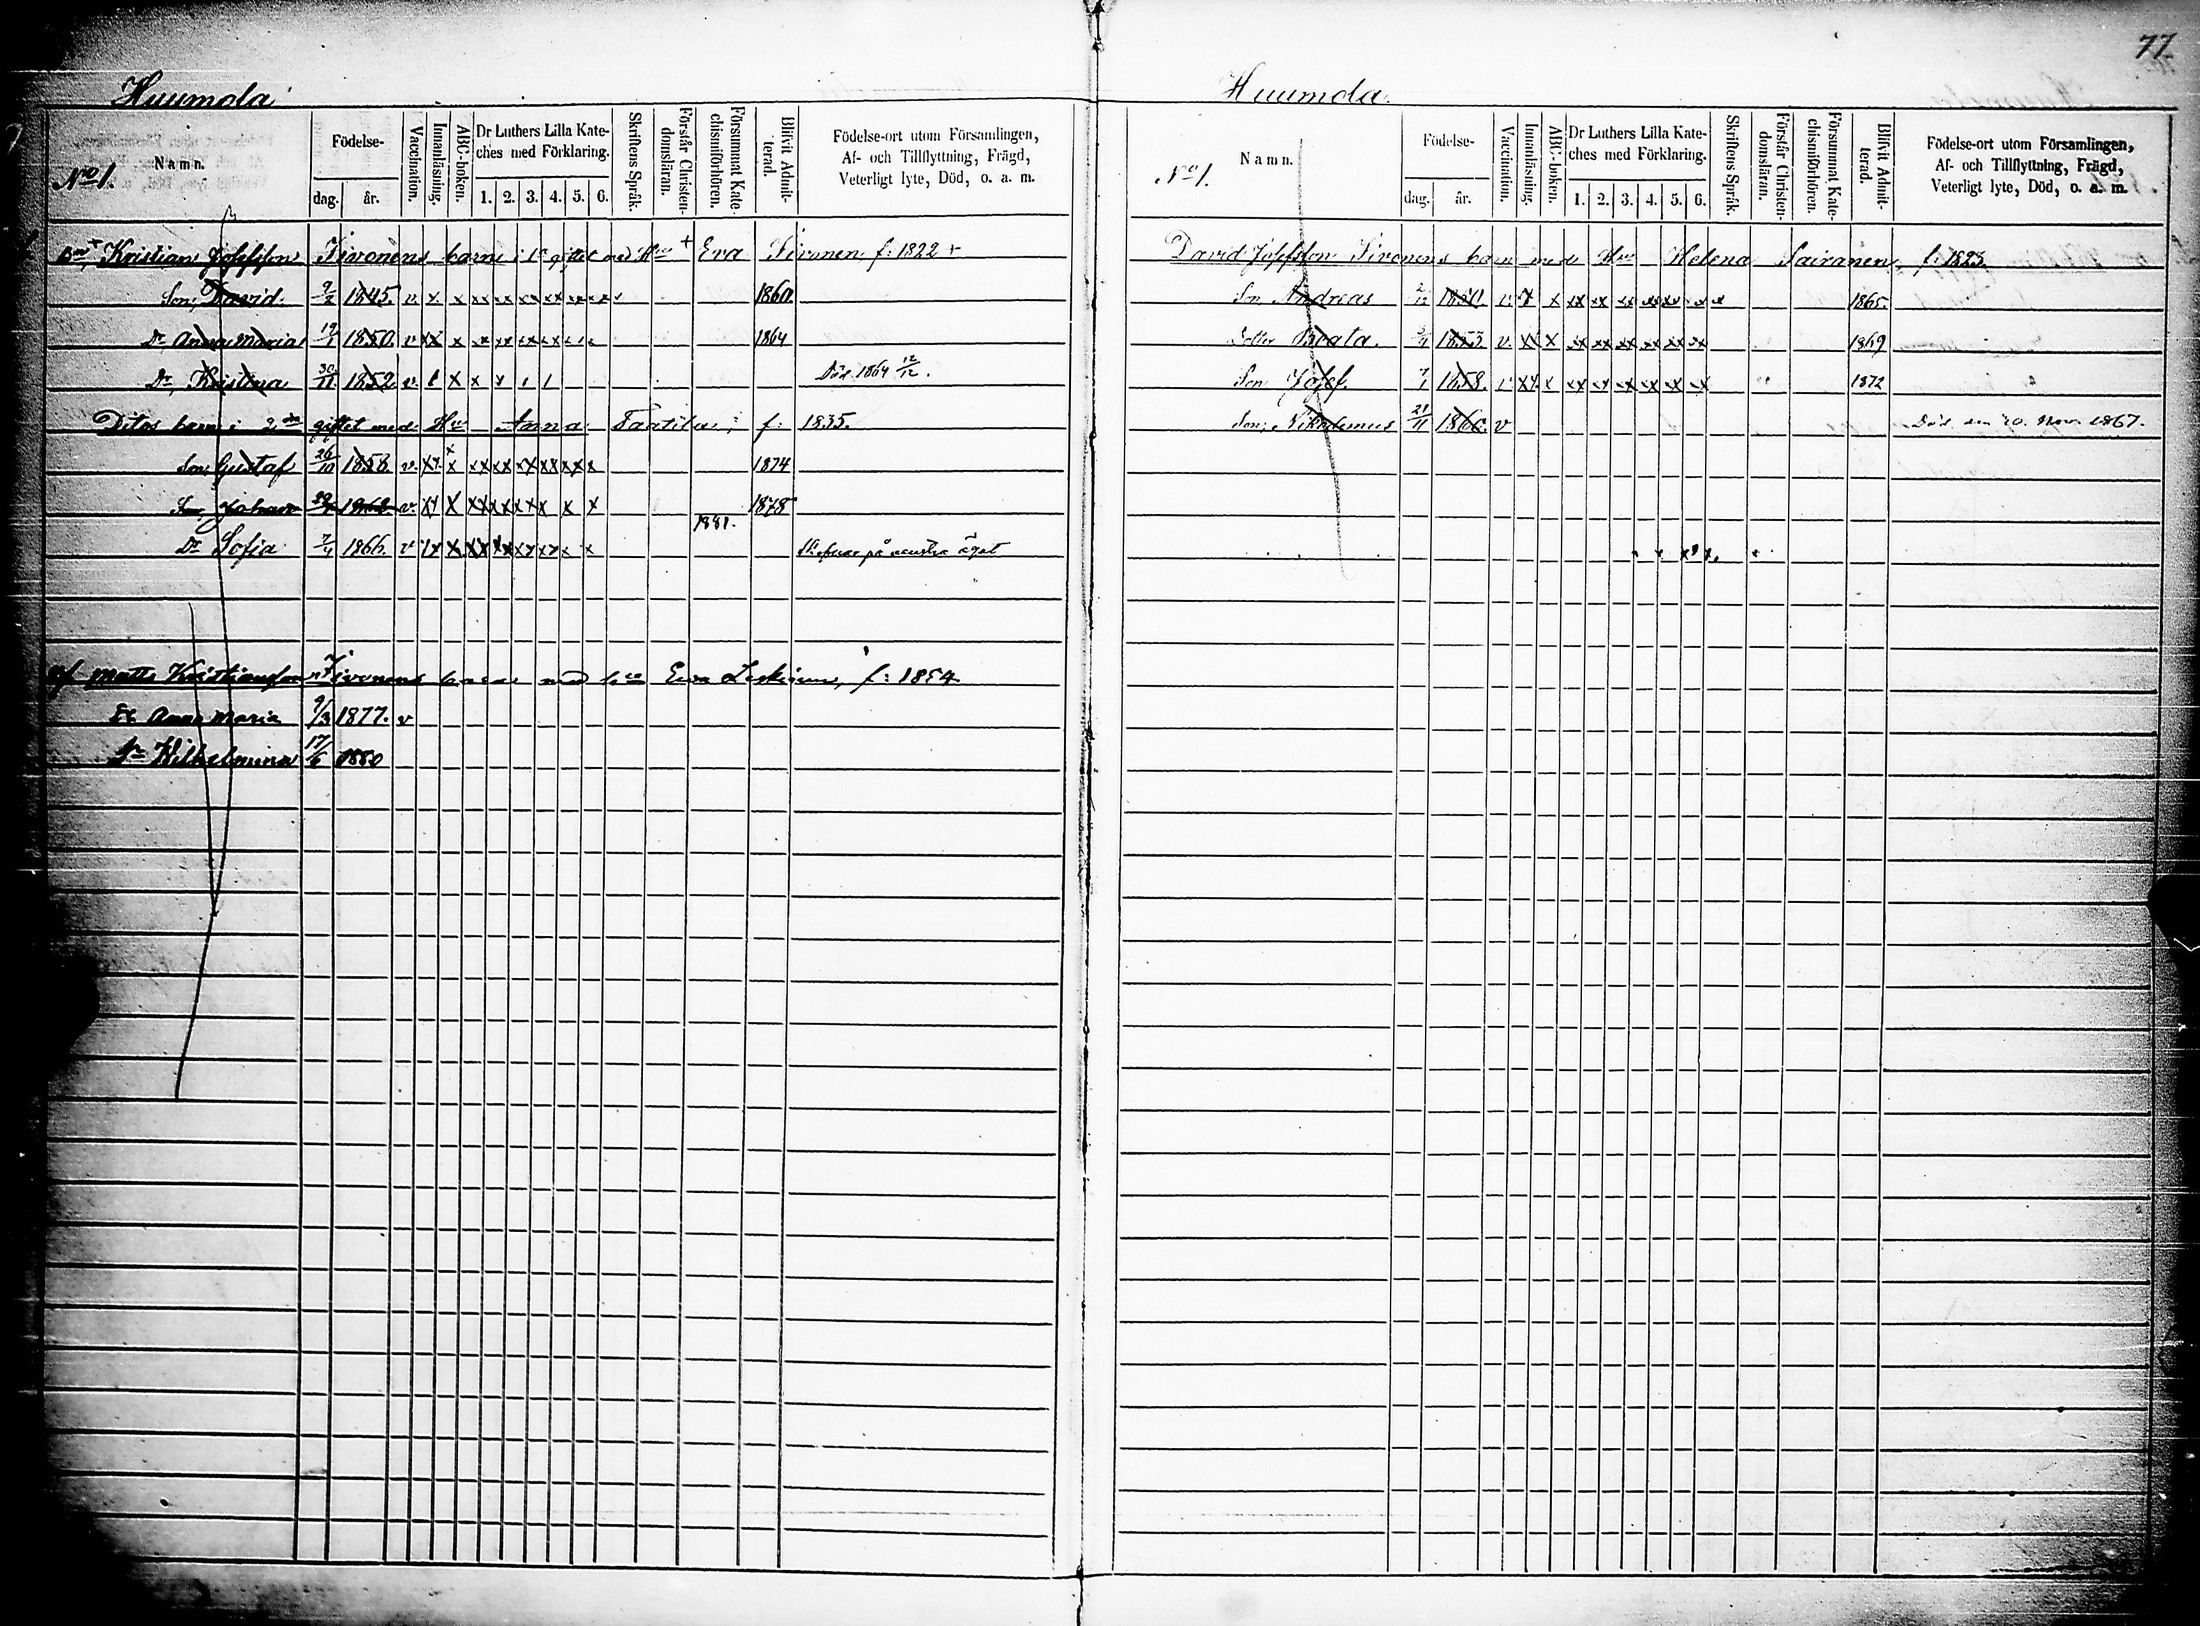 77.
Huumola
No 1.
Namn.
Födelse-
dag.
år.
Vaccination.
Innanläsning.
ABC-boken.
Dr Luthers Lilla Kateches med Förklaring.
1. 2. 3. 4. 5. 6.
Skriftens Språk.
Förstår Christendomsläran.
Försummat Katechismiförhören.
Blifvit Admitterad.
Födelse-ort utom Församlingen,
Af- och Tillflyttning, Frägd,
Veterligt lyte, Död, o. a. m.
Kristian Josefsson Sivonens barn i 1a giftet med Hu Eva Sivonen f: 1822 +
Son, David. 9/2 1845. v. x x xx xx xx xx xx xx 1860.
Dr, Anna Maria 19/1 1850. v xx x x xx xx xx 1864
Dr, Kristina 30/11 1852. v x x x Död 1864 12/12.
Ditos barn i 2dra giftet med Hu Anna Taatila, f: 1835.
Son, Gustaf 26/10 1858. v. xx x xx xx xx xx xx x 1874
Son, Johan 1862 v. xx x xx xx xx x x 1878
Dr Sofia 7/4 1866. v xx x xx xx xx xx x x 1881. på venstra ögat
Matts Kristiansson Sivonens barn med hu Eva Leskinen, f: 1854
Dr Anna Maria 9/3 1877. v
Dr Wilhelmina 17/6 1880
Huumola.
No 1.
Namn.
Födelse-
dag.
år.
Vaccination.
Innanläsning.
ABC-boken.
Dr Luthers Lilla Kateches med Förklaring.
1. 2. 3. 4. 5. 6.
Skriftens Språk.
Förstår Christendomsläran.
Försummat Katechismiförhören.
Blifvit Admitterad.
Födelse-ort utom Församlingen,
Af- och Tillflyttning, Frägd,
Veterligt lyte, Död, o. a. m.
David Josefsson Sivonens barn med Hu Helena Sairanen, f: 1823.
Son Andreas v. x x xx xx xx xx xx x x 1865.
Dotter Beata. 1853 v. xx x xx xx xx xx xx xx 1869
Son Josef. 7/1 1858. v xx x xx xx xx xx xx xx 1872
Son, Nikodemus 21/11 1860. v Död den 20. Nov. 1867.